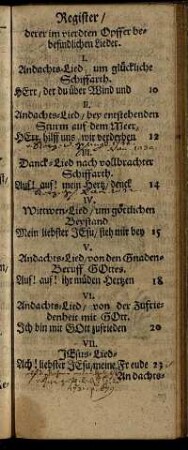 Register /
derer im vierdten Opffer be-
befindlichen Lieder.
I.
Andachts-Lied / um glückliche
Schiffarth.
HErr, der du über Wind und 10
II.
Andachts-Lied / bey entstehenden
Sturm auf dem Meer,
HErr, hilff uns, wir verderben 12
III.
Danck-Lied nach vollbrachter
Schiffarth.
Auf! auf! mein Hertz / denck 14
IV.
Wittwen-Lied / um göttlichen
Beystand
Mein liebster JEsu / sieh mir bey 15
V.
Andachts-Lied / von den Gnaden-
Beruff GOttes.
Auf! auf! ihr müden Hertzen 18
VI.
Andachts-Lied / von der Zufrie-
denheit mit GOtt.
Ich bin mit GOtt zufrieden 20
VII.
JEsus-Lied-
Ach! liebster JEsu, meine Freude 23
Andachts-